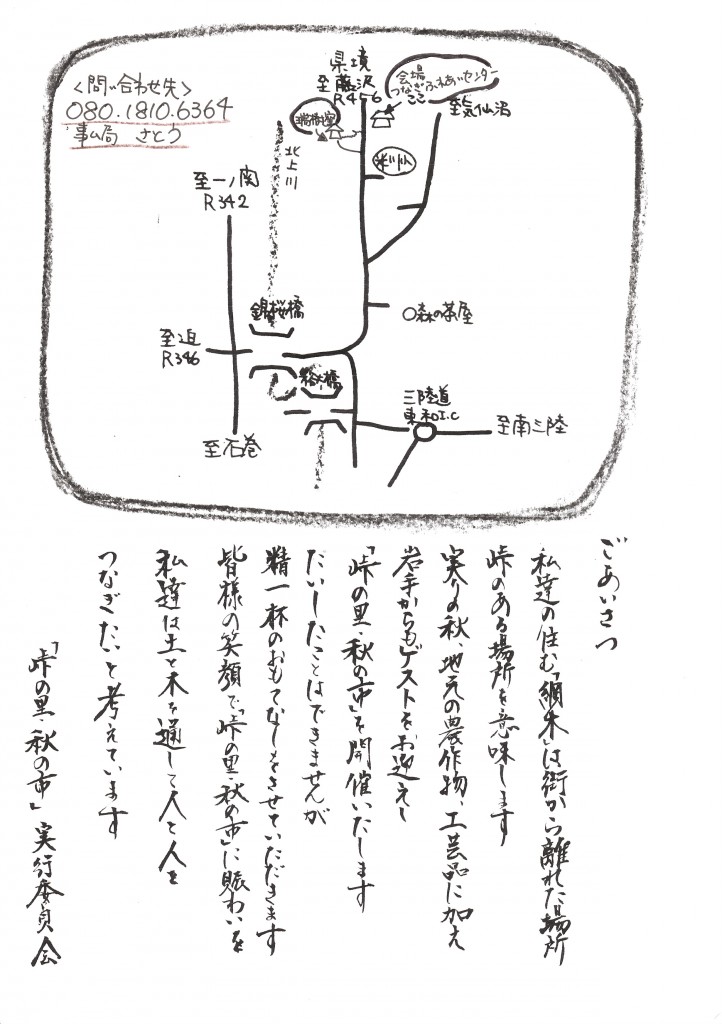 <問い合わせ先>
080.1810.6364
事ム局 さとう
県境
至藤沢
R456
会場
つなぎふれあいセンター
ココ
至気仙沼
北上川
米川
至一ノ関
R342
錦桜橋
○森の茶屋
至迫
R346
三陸道
東和I.C
至南三陸
至石巻
ごあいさつ
私達の住む「綱木」は街から離れた場所
峠のある場所を意味します
実りの秋、地元の農作物、工芸品に加え
岩手からもゲストをお迎えし
「峠の里・秋の市」を開催いたします
たいしたことはできませんが
精一杯のおもてなしをさせていただきます
皆様の笑顔で「峠の里・秋の市」に賑わいを
私達は土と木を通して人と人を
つなぎたいと考えています
「峠の里・秋の市」実行委員会